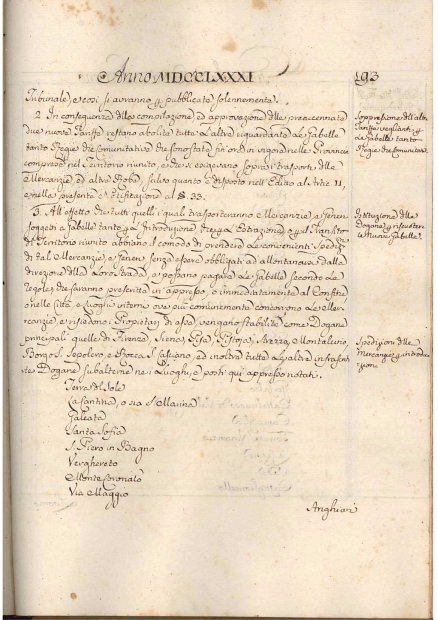 Anno MDCCLXXXI
193
Tribunale, e così si avranno p pubblicate solennemente.
2. In conseguenza della compilazione, ed approvazione delle preaccennate
due nuove Tariffe restano abolite tutte le altre riguardanti le Gabelle
tanto Regie che Comunitative che sono state fin ora in vigore nelle Provincie
comprese nel Territorio riunito, e che si esigevano sopra i trasporti delle
Mercanzie, ed altre Robe salvo quanto è disposto nell'Editto al Art. II,
e nella presente al § 33.
Soppressione delle altre
Tariffe veglianti p
le Gabelle tanto
Regie che Comunitative
3. All'effetto che tutti quelli i quali trasporteranno Mercanzie, e Generi
soggetti a Gabelle tanto p l'Introduzione che p l'Estrazione, o p il Transito
di Territorio riunito abbiano il comodo di prendere le convenienti Spedizioni
di tal Mercanzie, e Generi senza essere obbligati ad allontanarsi dalla
direzione della Loro Strada, e possano pagare le Gabelle secondo le
Regole, che saranno prescritte in appresso, o immediatamente al Confine
o nelle Città, e Luoghi interni ove più comunemente concorrono le Mer-
canzie, e risiedono i Propietarj di esse, vengono stabilite come Dogane
principali quelle di Firenze, Siena, Pisa, Pistoja, Arezzo, Montalcino,
Borgo S. Sepolcro, e Rocca S. Casciano, ed inoltre tutte le altre infrascrit-
te Dogane subalterne nei Luoghi, e posti qui appresso notati.
Istituzione delle
Dogane p riscuotere
le nuove Gabelle
Spedizioni delle
Mercanzie p introdu-
zione
Terra del Sole
La Cantina, o sia S. Marina
Galeata
Santa Sofia
S. Piero in Bagno
Verghereto
Monte Coronalo
Via Maggio
Anghiari